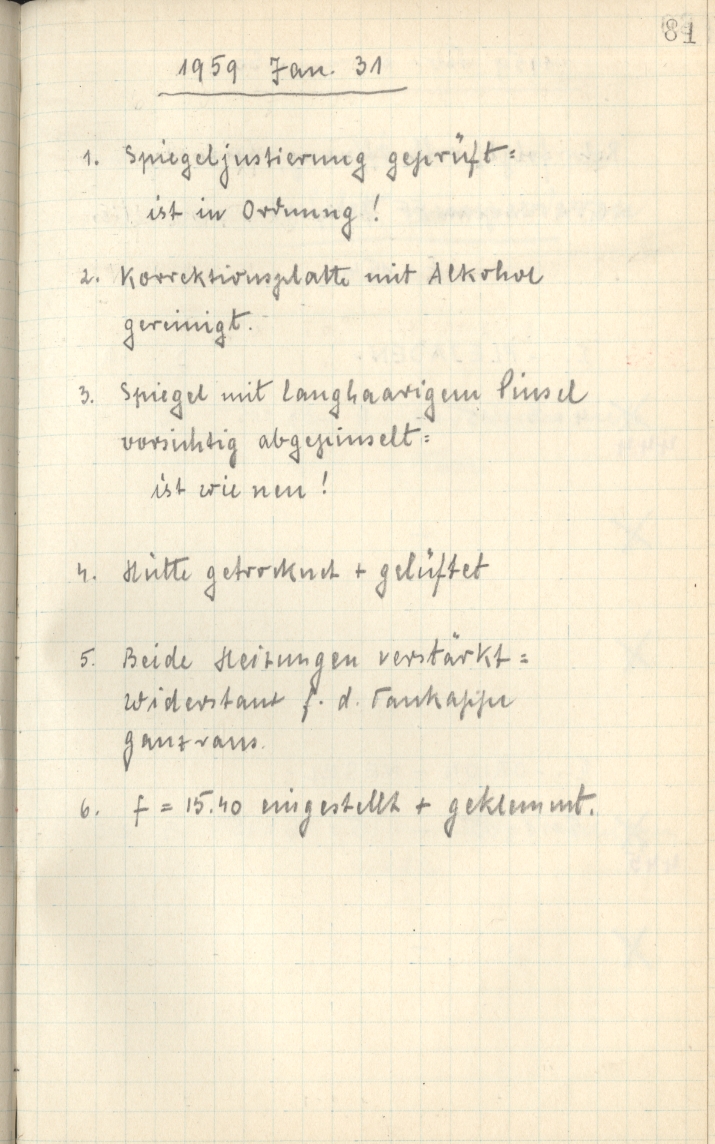 81
1959 Jan. 31
1. Spiegeljustierung geprüft:
ist in Ordnung!
2. Korrektionsplatte mit Alkohol
gereinigt.
3. Spiegel mit langhaarigem Pinsel
vorsichtig abgepinselt:
ist wie neu!
4. Hütte getrocknet + gelüftet
5. Beide Heizungen verstärkt:
Widerstand f. d. Taukappe
ganz raus.
6. f = 15.40 eingestellt + geklemmt.